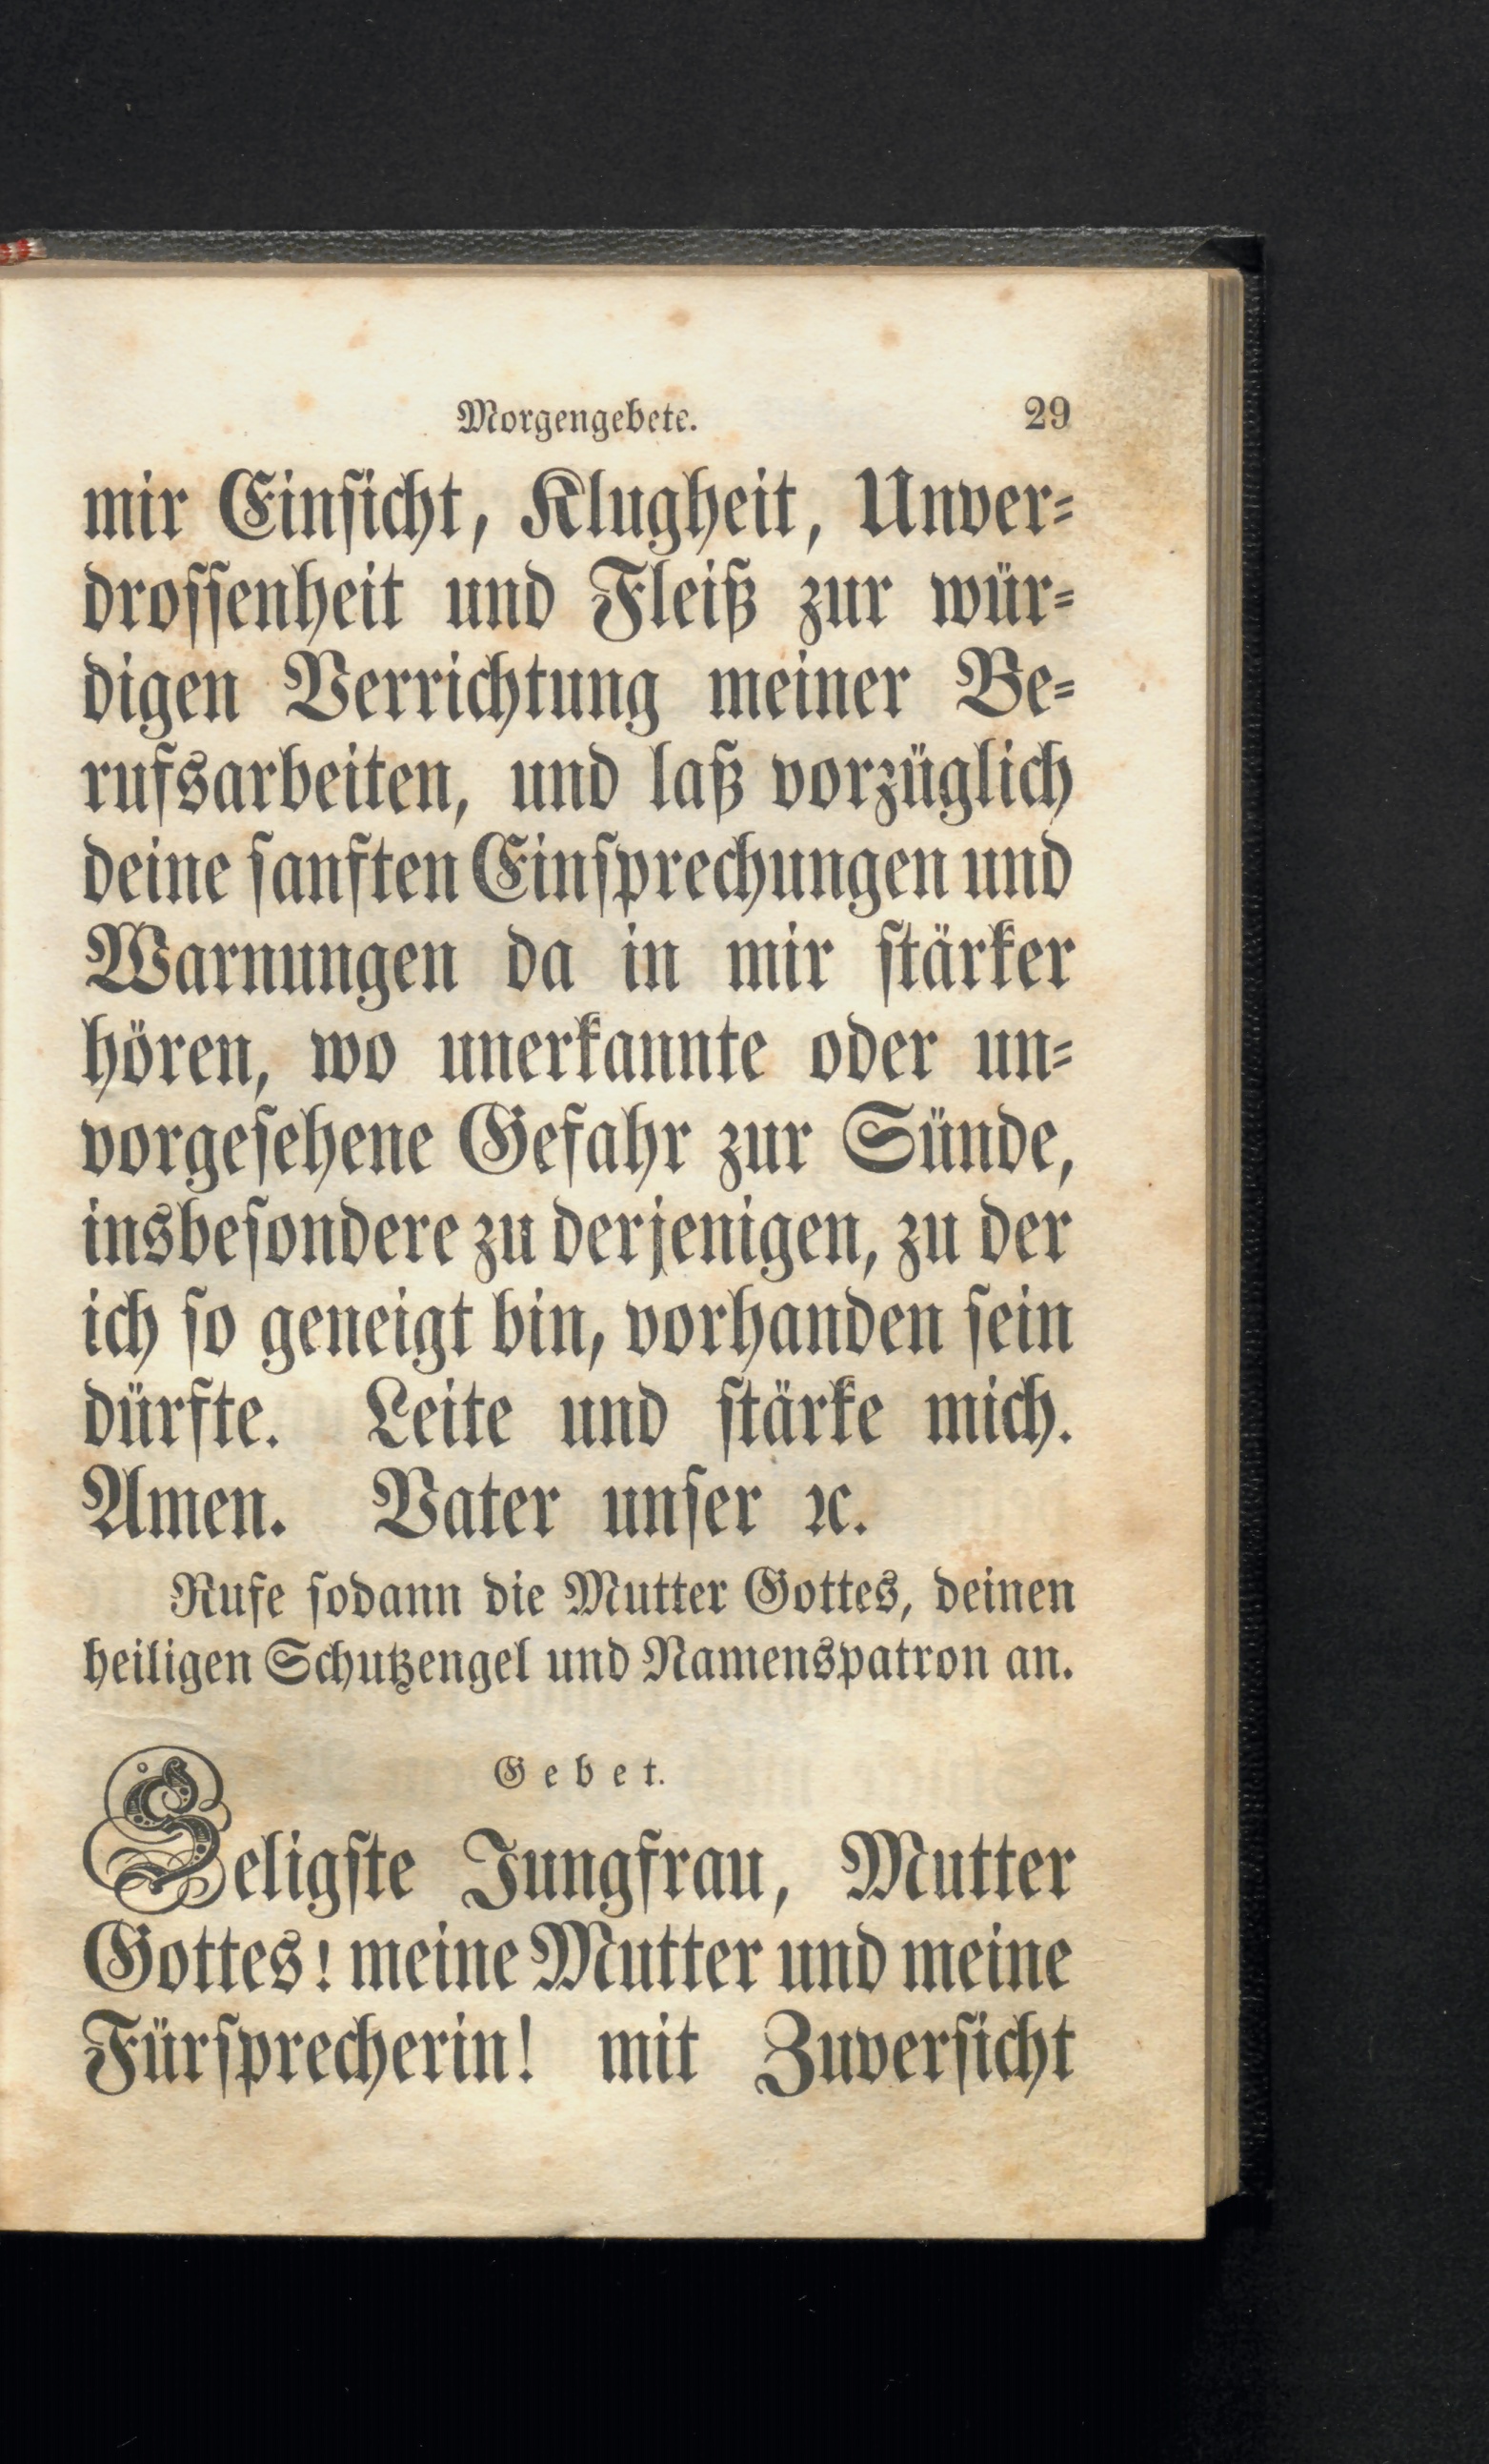 Morgengebete. 29
mir Einſicht, Klugheit, Unver⸗
droſſenheit und Fleiß zur wür⸗
digen Verrichtung meiner Be⸗
rufsarbeiten, und laß vorzüglich
deine ſanften Einſprechungen und
Warnungen da in mir ſtärker
hören, wo unerkannte oder un⸗
vorgeſehene Gefahr zur Sünde,
insbeſondere zu derjenigen, zu der
ich ſo geneigt bin, vorhanden ſein
dürfte. Leite und ſtärke mich.
Amen. Vater unſer ꝛc.
Rufe ſodann die Mutter Gottes, deinen
heiligen Schutzengel und Namenspatron an.
Gebet.
Seligſte Jungfrau, Mutter
Gottes! meine Mutter und meine
Fürſprecherin! mit Zuverſicht